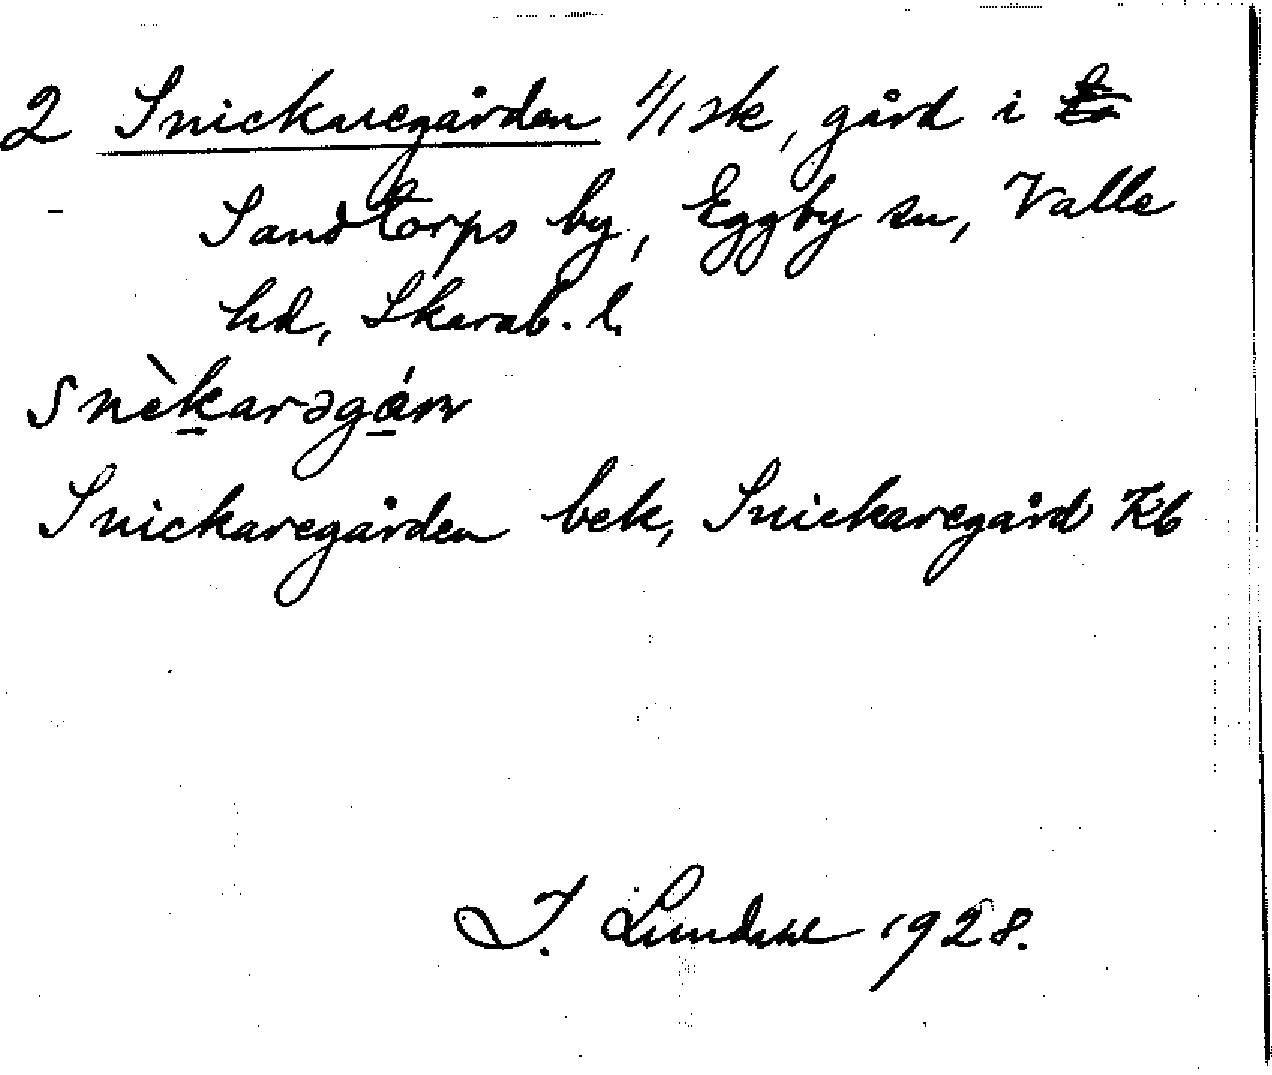 2 Snickaregården 1/1 sk, gård i
Sandtorps by, Eggby sn, Valle
hd, Skarab. l.
Snèkarəgán
Snickaregården bek, Snickaregård Kb
I. Lundahl 1928.